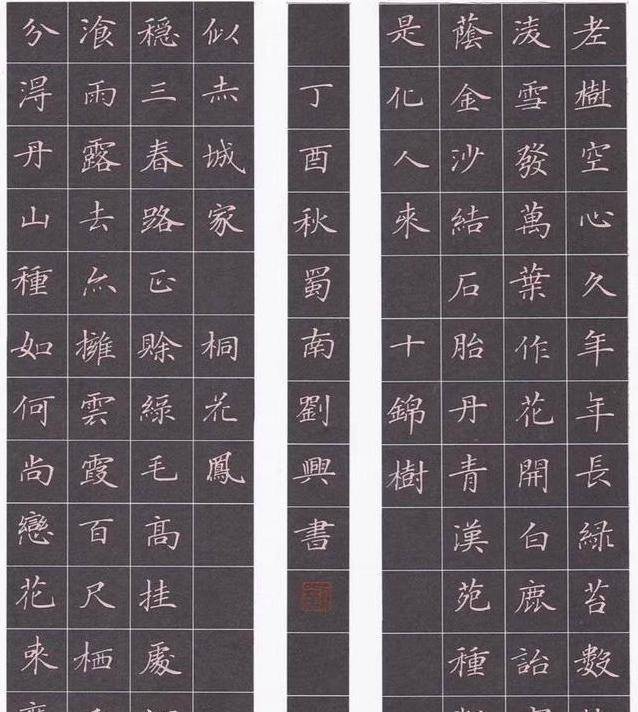 老樹空心久年年長綠苔數
淩雪發萬葉作花開白鹿詒
蔭金沙結石胎丹青漢苑種
是化人來 十錦樹
分淂丹山種如何尚戀花來
飡雨露去亦擁雲霞百尺栖
穩三春路正賒綠毛高挂處
似赤城家 桐花鳳
丁酉秋蜀南劉興書